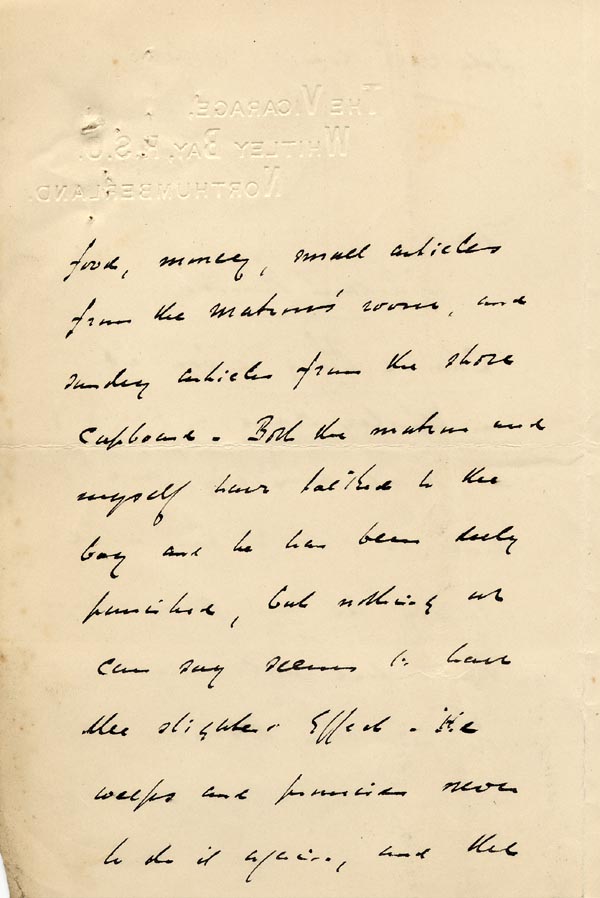 THE VICARAGE,
WHITLEY BAY, R.S.O.
NORTHUMBERLAND.
food, money, small articles
from the Matron's room, and
sundry articles from the store
cupboard. Both the matron and
myself have talked to the
boy and he has been duly
punished, but nothing we
can say seems to have
the slightest effect. He
weeps and promises never
to do it again, and the